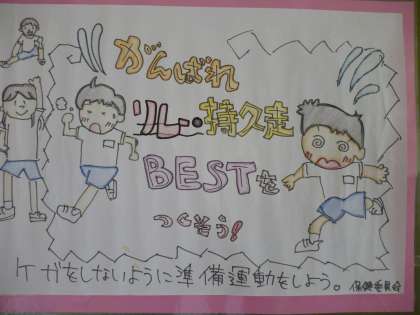 がんばれ
リレー・持久走
BESTを
つくそう!
ケガをしないように準備運動をしよう。
保健委員会